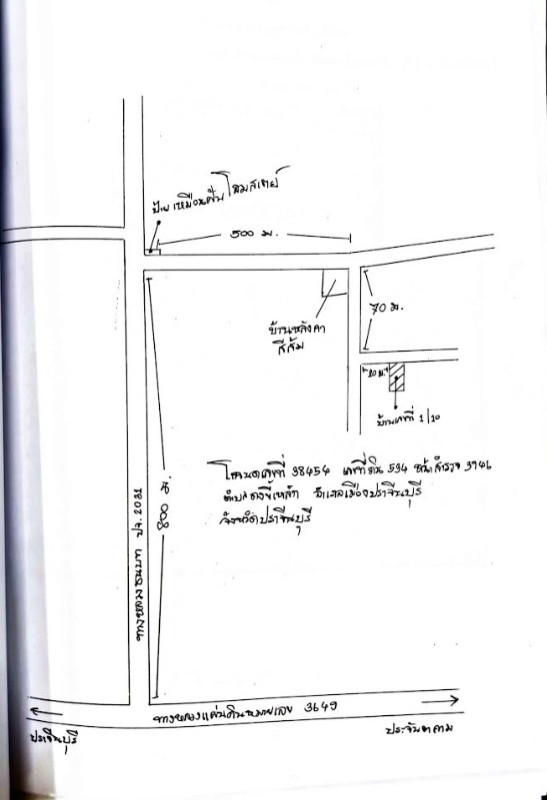 ป้าย เหมือนฝัน โฮมสเตย์
500 ม.
บ้านหลังคา
สีส้ม
70 ม.
20 ม.
บ้านเลขที่ 1/20
โฉนดเลขที่ 38454 เลขที่ดิน 534 หน้าสำรวจ 3946
ตำบลดงขี้เหล็ก อำเภอเมืองปราจีนบุรี
จังหวัดปราจีนบุรี
800 ม.
ทางหลวงชนบท ปจ. 2031
ทางหลวงแผ่นดินหมายเลข 3649
ปราจีนบุรี
ประจันตคาม